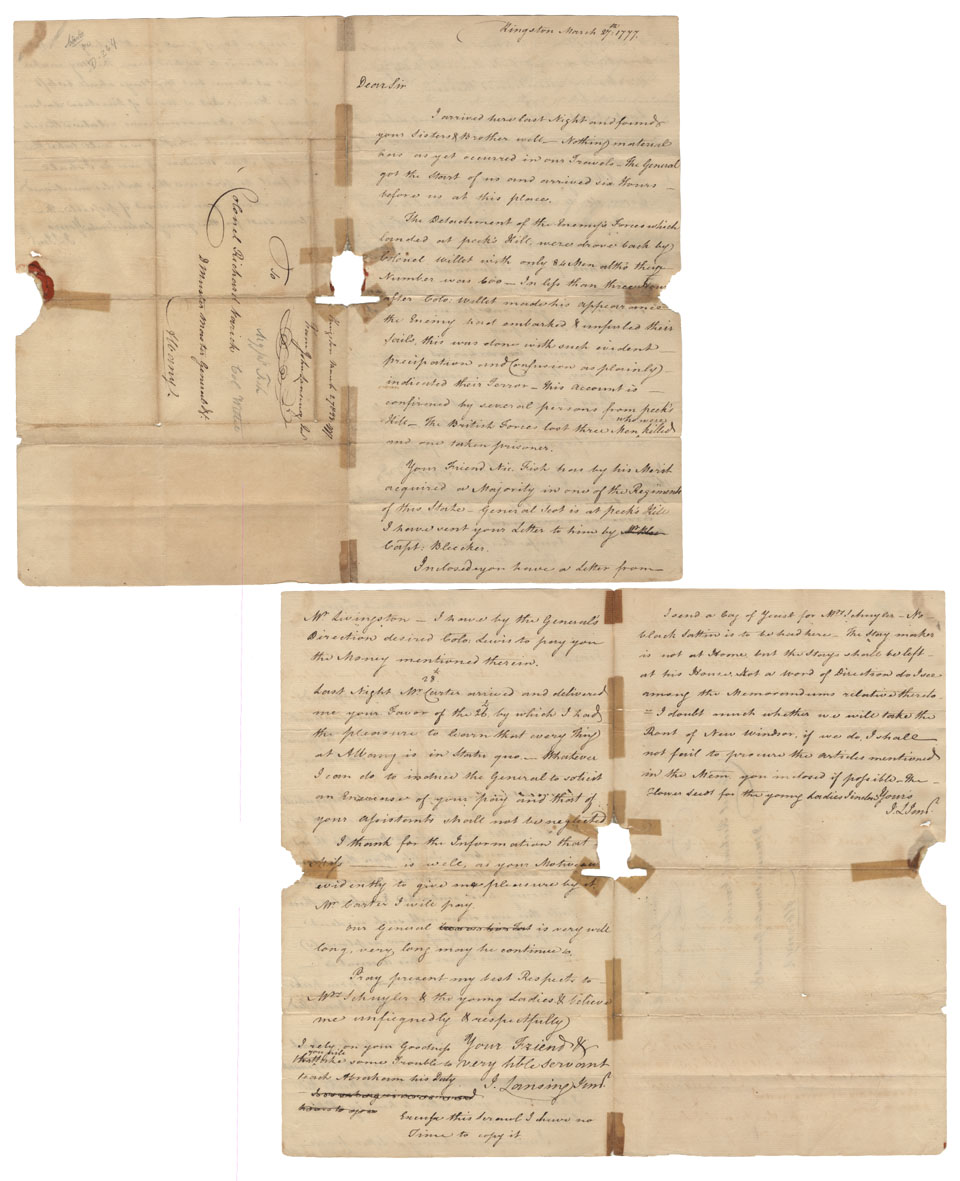 Kingston March 27th. 1777.
Dear Sir
I arrived here last Night and found
your Sisters & Brother well — Nothing material
has as yet occurred in our Travels — the General
got the Start of us and arrived six Hours
before us at this place.
The Detachment of the Enemy's Forces which
landed at peek's Kill, were drove back by
Colonel Willet with only 84 Men altho their
Number was 600 — In less than three Hours
after Colo. Willet made his appearance
the Enemy had embarked & unfurled their
Sails. this was done with such evident
precipation and Confusion as plainly
indicated their Terror — this Account is
confirmed by several persons from peek's
Kill — The British Forces lost three Men who were killed
and one taken prisoner.
Your Friend Nic. Fish has by his Merit
acquired a Majority in one of the Regiments
of this State — General Scot is at peek's Kill
I have sent your Letter to him by
Capt: Bleeker.
Inclosed you have a Letter from
To
Colonel Richard Varick
D Muster Master General &c.
Albany.
Kingston March 27th 1777
from John Lansing Jun
Col Willet
Major Fish
Mr. Livingston — I have by the General's
Direction desired Colo. Lewis to pay you
the Money mentioned therein.
28th
Last Night Mr. Carter arrived and delivered
me your Favor of the 26th by which I had
the pleasure to learn that every thing
at Albany is in Statu quo. — Whatever
I can do to induce the General to solicit
an Encrease of your pay and that of
your Assistants shall not be neglected
I thank for the Information that
Miss ——— is well, as your Motive was
evidently to give me pleasure by it
Mr. Carter I will pay
Our General is very well
long, very, long may he continue so
Pray present my best Respects to
Mrs. Schuyler & the young Ladies & believe
me unfeignedly & respectfully
Your Friend &
very hble servant
J. Lansing Junr.
I rely on your Goodness
that you'll take some Trouble to
teach Abraham his Duty
Excuse this scrawl I have no
Time to copy it
I send a bag of Yeast for Mrs. Schuyler — No
black Sattin is to be had here — The Stay maker
is not at Home but the Stays shall be left
at his House. Not a word of Direction do I see
among the Memorandums relative thereto
— I doubt much whether we will take the
Rout of New Windsor, if we do, I shall
not fail to procure the articles mentioned
in the Mem: you inclosed if possible — the
Flower Seeds for the young Ladies Yours
J. L. Junr.